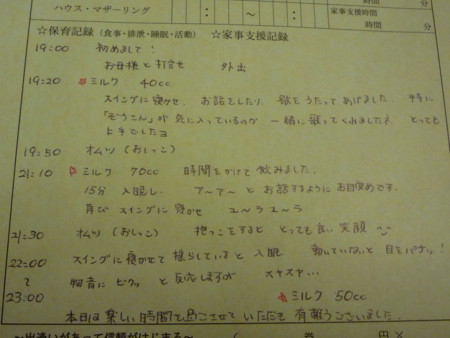 ハウス・マザーリング : ~ : 家事支援時間
時間 分
☆保育記録（食事・排泄・睡眠・活動） ☆家事支援記録
19:00 初めまして！
お母様と打合せ 外出
19:20 ミルク 40cc
スイングに寝かせ、お話をしたり、歌をうたってあげました。特に
「ぞうさん」が気に入っているのか 一緒に歌ってくれました♪ とっても
上手でしたヨ
19:50 オムツ（おしっこ）
21:10 ミルク 70cc 時間をかけて飲みました。
15分 入眠し、ア〜ア〜とお話するようにお目覚めです。
再びスイングに寝かせ ユ〜ラユ〜ラ
21:30 オムツ（おしっこ） 抱っこをすると とっても良い笑顔
22:00 スイングに寝かせて揺らしていると入眠 動いていないと目をパチッ！
〜 物音にビクッと反応しますが スヤスヤ…
23:00 ミルク 50cc
本日は楽しい時間を過ごさせていただき有難うございました。
〜出逢いがあって信頼がはじまる〜